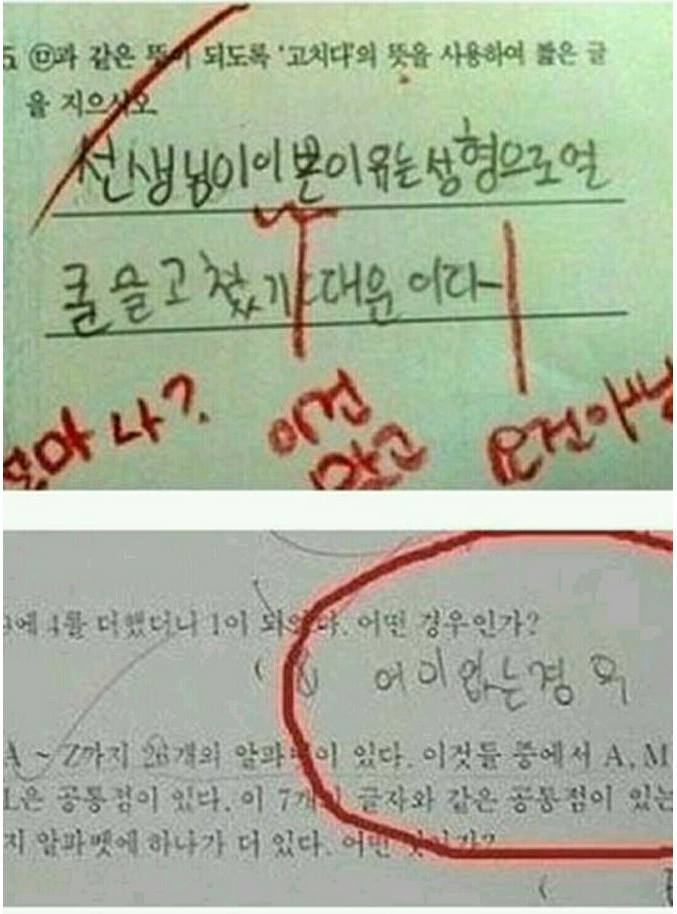 5. ㉤과 같은 뜻이 되도록 '고치다'의 뜻을 사용하여 짧은 글
을 지으시오
선생님이이쁜이유는성형으로얼
굴을고쳤기때문이다
꼬마 나? 이건 맞고 요건아님
에 4를 더했더니 1이 되었다. 어떤 경우인가?
( ) 어이없는경우
A ~ Z까지 26개의 알파벳이 있다. 이것들 중에서 A, M
은 공통점이 있다. 이 7개의 글자와 같은 공통점이 있는
지 알파벳에 하나가 더 있다. 어떤 것인가?
(